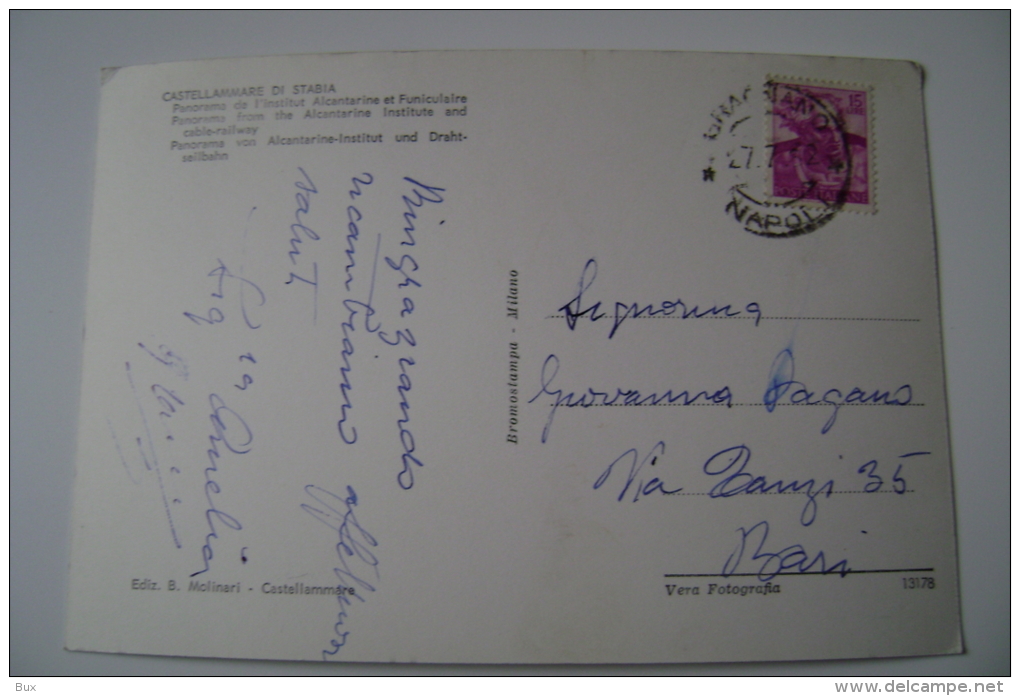 CASTELLAMMARE DI STABIA
Panorama de l'Institut Alcantarine et Funiculaire
Panorama from the Alcantarine Institute and
cable-railway
Panorama von Alcantarine-Institut und Draht-
seilbahn
Ringraziando
ricambiamo affettuosi
saluti
Amelia
Ediz. B. Molinari - Castellammare
Bromostampa - Milano
15
NAPOLI
Signorina
Giovanna Pagano
Via Zanzi 35
Bari
Vera Fotografia
13178
Bux
www.delcampe.net